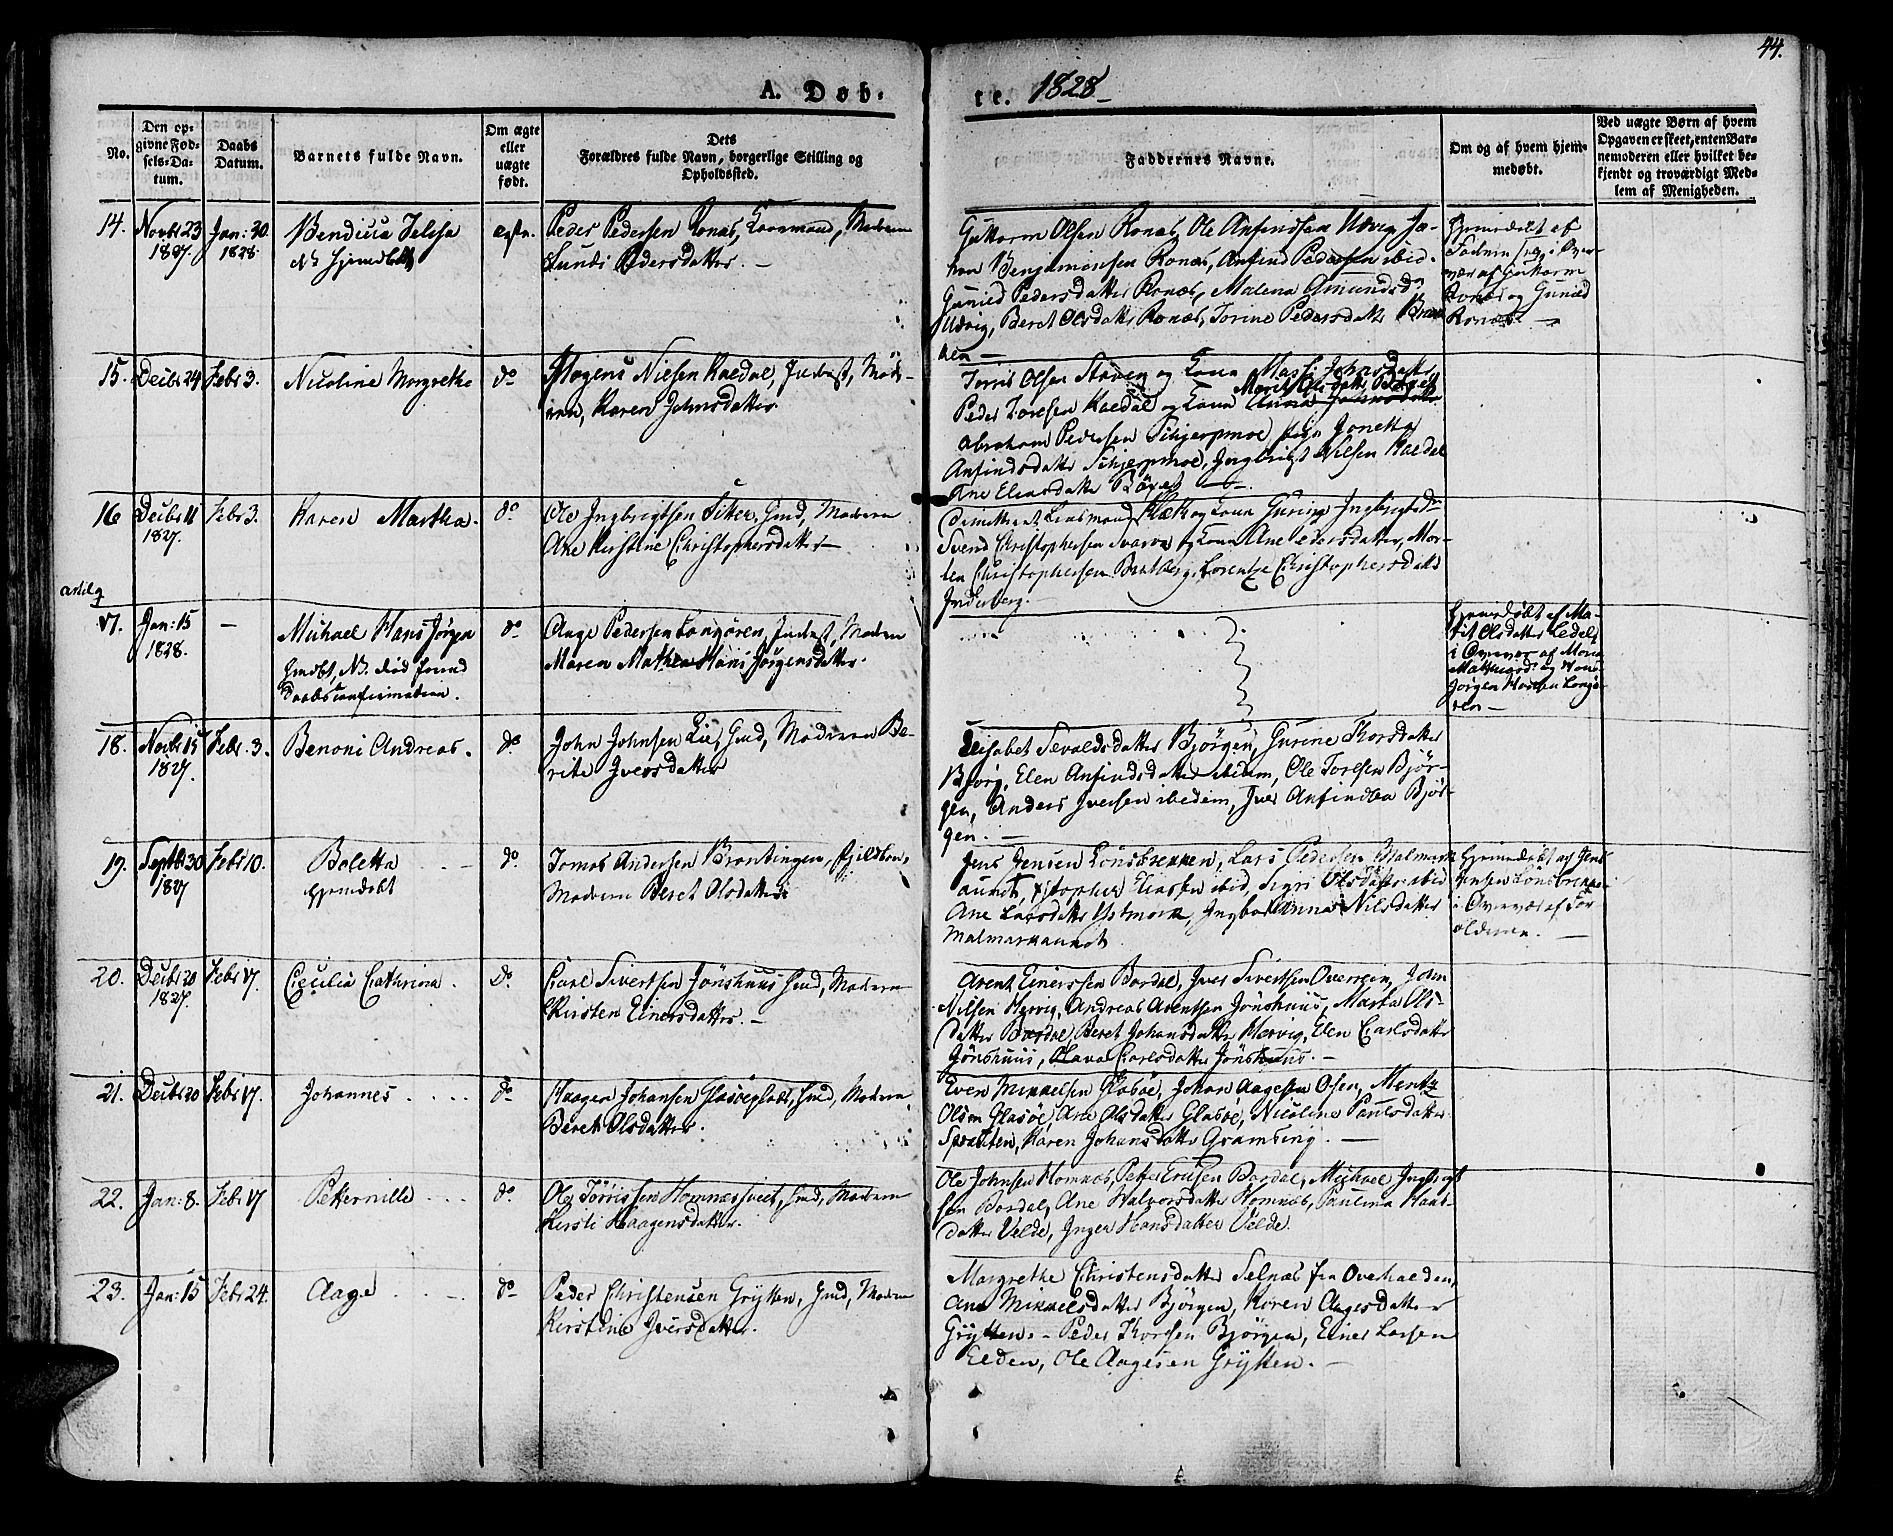 44.
A. Døb-
te. 1828
No.
Den op-
givne Fød-
sels-Da-
tum.
Daabs
Datum.
Barnets fulde Navn.
Om ægte
eller
uægte
født.
Dets
Forældres fulde Navn, borgerlige Stilling og
Opholdssted.
Faddernes Navne.
Om og af hvem hjem-
medøbt.
Ved uægte Børn af hvem
Opgaven er skeet, enten Bar-
nemoderen eller hvilket be-
kjendt og troværdigt Med-
lem af Menigheden.
14. Novbr 23
1827.
Jan: 30.
1828.
Bendicta
Peder Pedersen Ronæs, Moderen
Pedersdatter. —
Guttorm Olsen Ronæs, Ole Anfindsen Utvig, Jo-
han Benjaminsen Ronæs, Anfind Pedersen ibid.
Gunild Pedersdatter Ronæs, Malena Amundsd.
Utvig, Beret Olsdatter Ronæs, Torine Pedersdatter
ken —
Hjemdøbt af
i Over-
vær af Guttorm
Ronæs og Gunild
Ronæs. —
15. Decbr 24 Febr 3. Nicoline Margrethe do
Mogens Nilsen Kaldal, Inderst, Mode-
ren, Karen Johnsdatter.
Torris Olsen Staven og Kona Massi Johnsdatter
Peder Toresen Kaldal og Kona Marit Olsdatter
Abraham Pedersen Skjerpmoe, Pige Jonetta
Anfindsdatter Skjerpmoe, Ingbrigt Nilsen Kaldal
Ane Eliasdatter —
16 Decbr 11
1827.
Febr 3. Karen Martha. do
Ole Ingbrigtsen Sitter, Gmd, Moderen
Ane Kerstine Christophersdatter —
og Kona Guring Ingbrigtsd.
Svend Christophersen Svarva og Kona Ane Pedersdatter, Mor-
ten Christophersen Lorentze Christophersdatter
Inderberg. —
17. Jan: 15
1828.
— Michael Hans Jørgen do
Hmdbt, NB. død forend
Daabsconfirmationen.
Aage Pedersen Langøren, Inderst, Moderen
Maren Mathea Hans Jørgensdatter.
Hjemdøbt af Ma-
rit Olsdatter
i Overvær af
og Hans
Jørgen Langø-
ren —
18. Novbr 15
1827.
Febr. 3. Benoni Andreas. do
John Johnsen Lie, Gmd, Moderen Be-
rite Iversdatter
Elisabet Sevaldsdatter Bjørgen, Gurine Thorsdatter
Bjørg, Elen Anfindsdatter ibidem, Ole Toresen Bjør-
gen, Anders Iversen ibidem, Iver Anfindsen Bjør-
gen. —
19. Septbr 30
1827
Febr 10. Boletta do
Hjemdøbt
Tomas Andersen Brantingen,
Moderen Beret Olsdatter
Jens Jensen Lønsbrekken, Lars Pedersen Malmark
aunet, Kristopher Eliassen ibid, Sigri Olsdatter ibid
Ane Larsdatter Ystmark, Nilsdatter
Malmarkaunet.
Hjemmedøbt af Jens
Jensen Lønsbrekken
i Overvær af For
ældrene. —
20. Decbr 20
1827.
Febr 17. Cecilia Cathrina. do.
Carl Sivertsen Jønshuus Gmd, Moderen
Kirsten Einersdatter. —
Arent Einerssen Bardal, Iver Sivertsen Overrein, John
Nilsen Hervig, Andreas Arentsen Jønshuus, Marta Ols-
datter Bardal, Beret Johansdatter Hervig, Elen Carlsdatter
Jønshuus, Olava Carlsdatter Jønshuus. —
21. Decbr 20 Febr 17. Johannes . . . . do
Haagen Johansen Glasøepladsen, Gmd, Moderen,
Beret Olsdatter.
Even Mikkelsen Glasøe, Johan Aagesen Osen, Mentz
Olsen Glasøe, Ane Olsdatter Glasøe, Nicoline Paulsdatter
Spratten, Karen Johansdatter Gramsing. —
22. Jan: 8. Febr 17 Petternille . . . . do.
Ole Tørrissen Homnæsveet, Gmd, Moderen
Kirsti Haagensdatter.
Ole Johnsen Homnæs, Peter Ericsen Bardal, Michael Ingbrigt
sen Bardal, Ane Halvorsdatter Homnæs, Paulina Haat-
datter Velde, Inger Hansdatter Velde.
23. Jan: 15 Febr 24. Aage . . — do
Peder Christensen Grytten, Gmd, Moderen
Kirstine Iversdatter.
Margrethe Christensdatter Selnæs fra Overhalden,
Ane Mikkelsdatter Bjørgen, Karen Aagesdatter
Grytten. — Peder Thorsen Bjørgen, Einer Larsen
Elden, Ole Aagesen Grytten. —